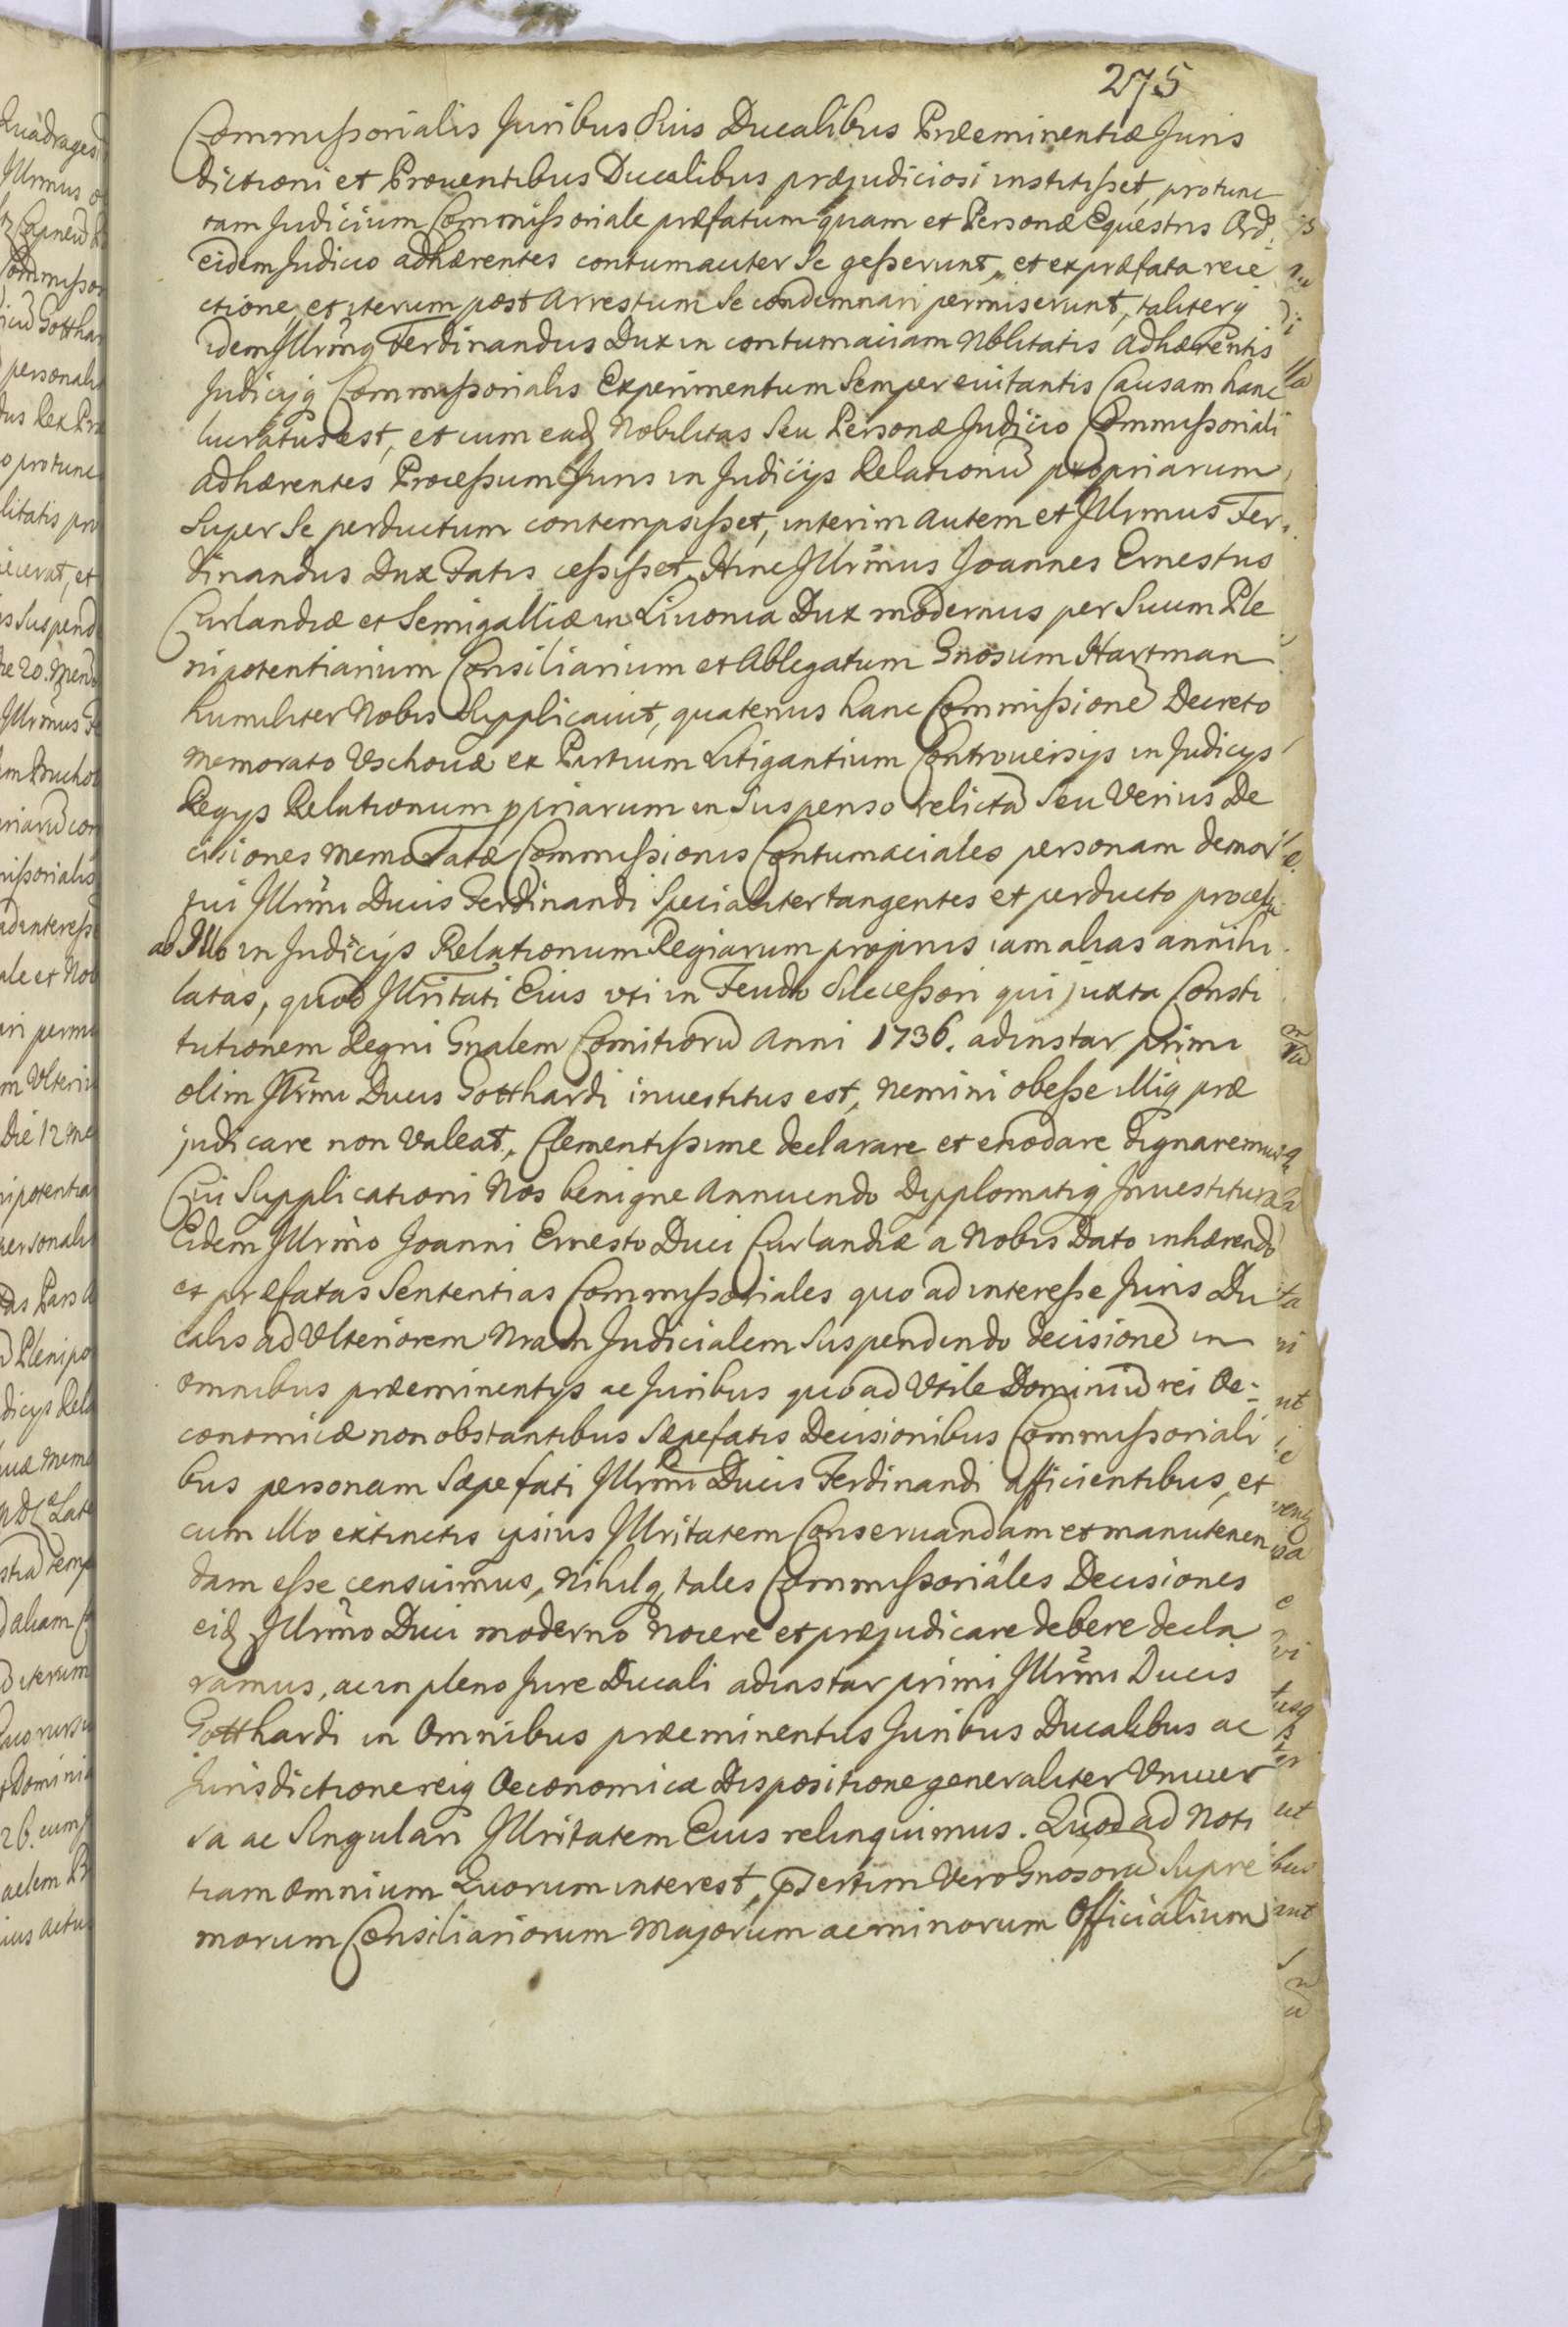 275
Commissorialis Juribus Suis Ducalibus Præeminentiæ Juris
dictioni et Prouentibus Ducalibus præjudiciosi institisset, protunc
tam Judicium Commissoriale præfatum quam et Personæ Equestris Ord:
eidem Judicio adhærentes contumaciter Se gesserunt, et ex præfata reie
ctione et iterum post Arrestum Se condemnari permiserunt, taliterq
idem Illrm̃q Ferdinandus Dux in contumaciam Nblitatis adhærentis
Judicijq Commissorialis Experimentum Semper euitantis Causam hanc
lucratus est, et cum eadq Nobilitas Seu Personæ Judicio Commissoriali
adhærentes Processum Juris in Judicijs Relationũ propriarum
Super Se perductum contempsisset, interim autem et Illrmus Fer
dinandus Dux Fatis cessisset. Hinc Illrm̃us Joannes Ernestus
Curlandiæ et Semigalliæ in Liuonia Dux modernus per Suum Ple
nipotentiarium Consiliarium et Ablegatum Gnosum Hartman
humiliter Nobis Supplicauit, quatenus hanc Commissionẽ Decreto
memorato Vschouæ ex Partium Litigantium Controuersijs in Judicijs
Regijs Relationum ppriarum in Suspenso relictã Seu Verius De
cisiones memoratæ Commissionis Contumaciales personam demor
tui Illrm̃i Ducis Ferdinandi Specialiter tangentes et perducto processu
ab Illo in Judicijs Relationum Regiarum proprijs iam alias annihi
latas, quod Illritati Eius vti in Feudo Successori qui juxta Consti
tutionem Regni Gnalem Comitiorũ Anni 1736. adinstar primi
olim Illrm̃i Ducis Gotthardi inuestitus est, Nemini obesse illiq præ
judicare non Valeat, Clementissime declarare et enodare dignaremur
Cui Supplicationi Nos benigne Annuendo Dyplomatiq Inuestituræ
Eidem Illrm̃o Joanni Ernesto Duci Curlandiæ a Nobis Dato inhærendo
et præfatas Sententias Commissoriales quo ad interesse Juris Du
calis ad Vlteriorem Nram Judicialem Suspendendo decisionẽ in
omnibus præeminentijs ac Juribus quo ad Vtile Dominiũ rei Oe:
conomicæ non obstantibus Sæpefatis Decisionibus Commissoriali
bus personam Sæpefati Illrm̃i Ducis Ferdinandi afficientibus, et
cum illo extinctis ipsius Illritatem Conseruandam et manutenen
dam esse censuimus, Nihilq tales Commissoriales Decisiones
eidq Illrm̃o Duci moderno Nocere et præjudicare debere decla
ramus, ac in pleno Jure Ducali adinstar primi Illrm̃i Ducis
Gotthardi in Omnibus præeminentijs Juribus Ducalibus ac
Jurisdictione reiq Oeconomicæ Dispositione generaliter Vniuer
sa ac Singulari Illritatem Eius relinquimus. Quod ad Noti
tiam omnium Quorum interest, p̃sertim Vero Gnosorũ Supre
morum Consiliariorum Majorum ac minorum Officialium